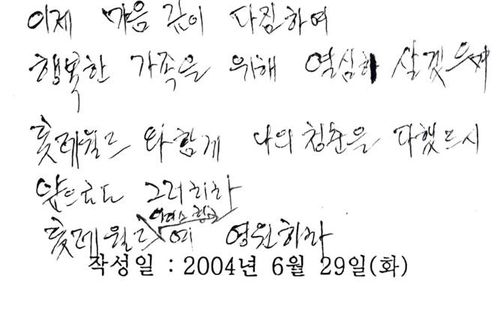 이제 마음 깊이 다짐하여
행복한 가족을 위해 열심히 살겠으며
롯데월드와 함께 나의 청춘을 다했드시
앞으로도 그러하리라
롯데월드 여 영원하라
작성일 : 2004년 6월 29일(화)